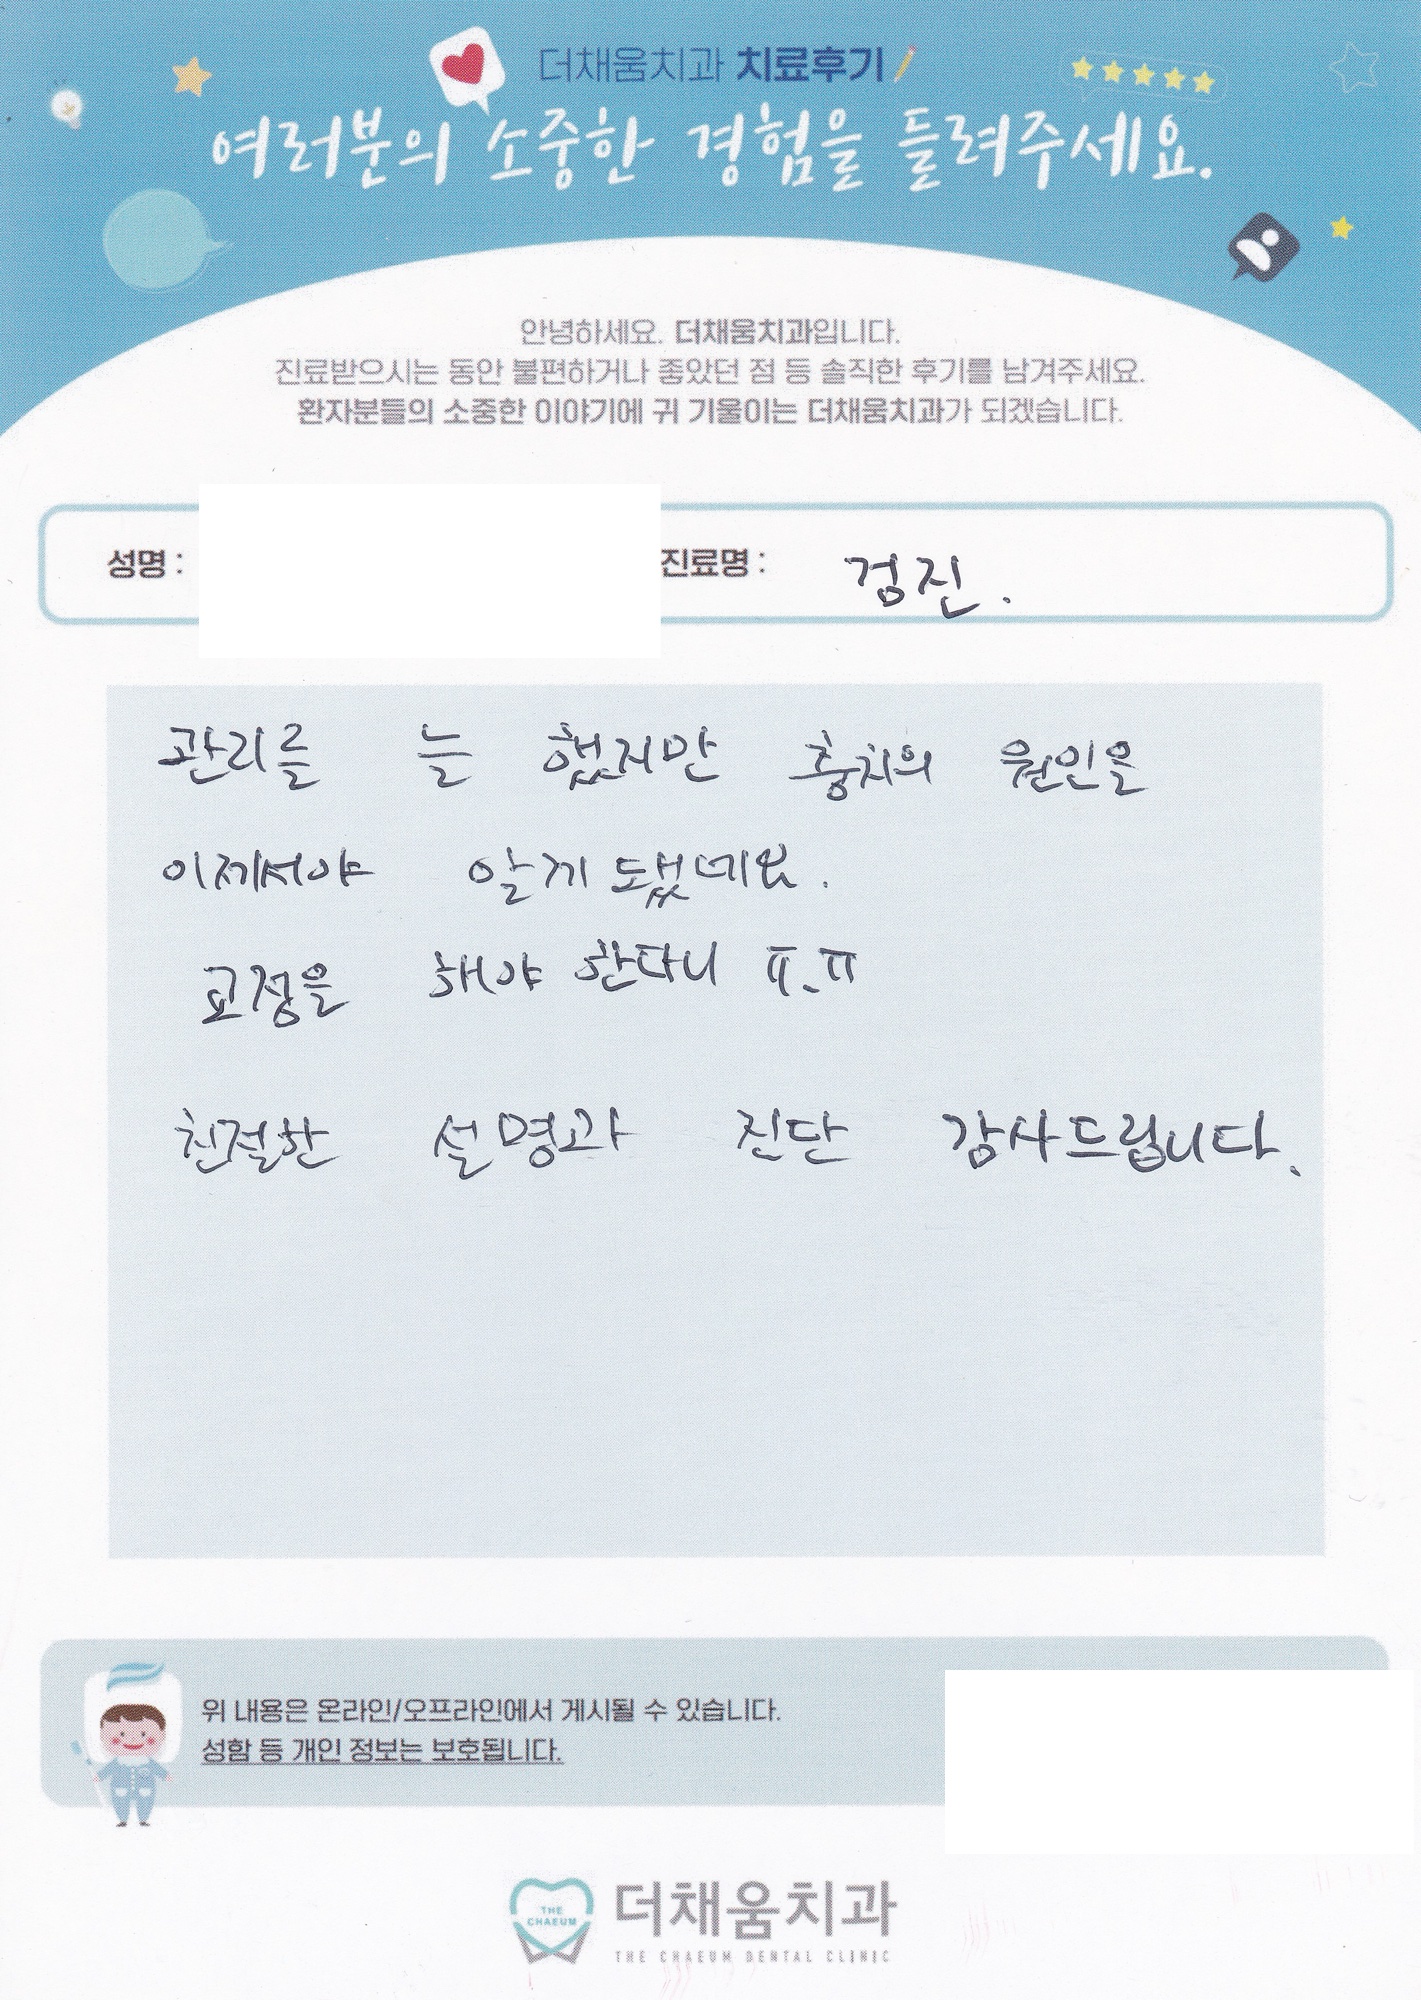 더채움치과 치료후기
여러분의 소중한 경험을 들려주세요.
안녕하세요. 더채움치과입니다.
진료받으시는 동안 불편하거나 좋았던 점 등 솔직한 후기를 남겨주세요.
환자분들의 소중한 이야기에 귀 기울이는 더채움치과가 되겠습니다.
성명 : 진료명 : 검진.
관리를 늘 했지만 충치의 원인을
이제서야 알게 됐네요.
교정을 해야 한다니 ㅠ.ㅠ
친절한 설명과 진단 감사드립니다.
위 내용은 온라인/오프라인에서 게시될 수 있습니다.
성함 등 개인 정보는 보호됩니다.
THE
CHAEUM
더채움치과
THE CHAEUM DENTAL CLINIC